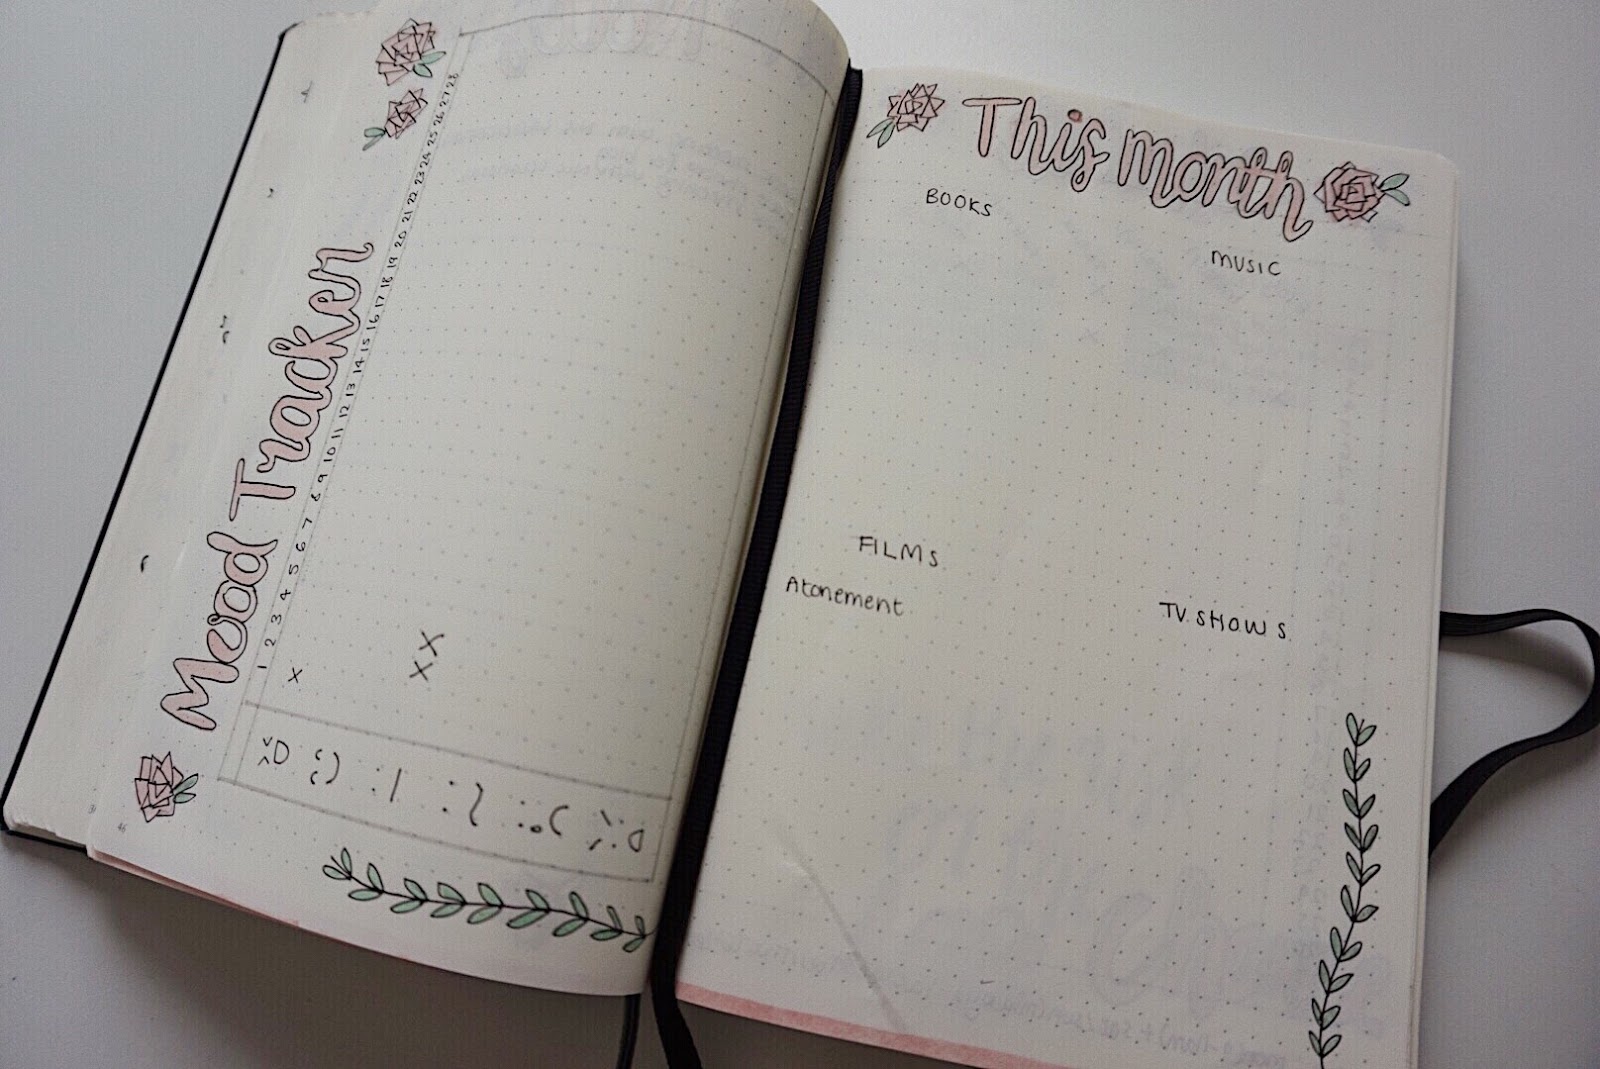 Mood Tracker
1 2 3 4 5 6 7 8 9 10 11 12 13 14 15 16 17 18 19 20 21 22 23 24 25 26 27 28
x
x
x
:D :) :| :{ :.o( >:D
46
This month
BOOKS
MUSIC
FILMS
Atonement
TV SHOWS